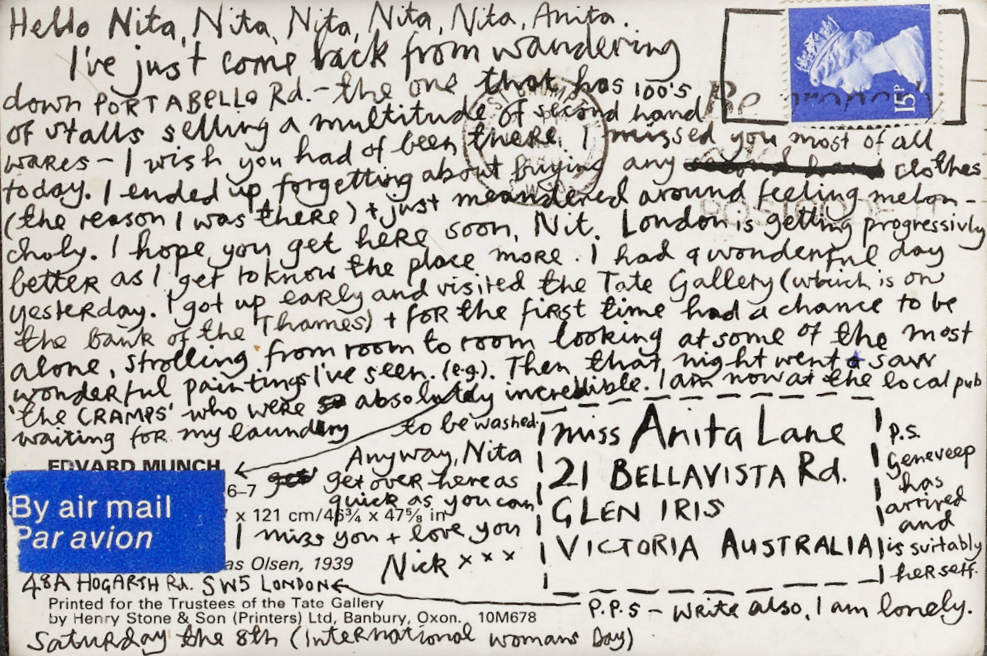 Hello Nita, Nita, Nita, Nita, Nita, Anita.
I've just come back from wandering
down PORTABELLO Rd. - the one that has 100's
of stalls selling a multitude of second hand
wares - I wish you had of been there. I missed you most of all
today. I ended up forgetting about buying any clothes
(the reason I was there) + just meandered around feeling melon-
choly. I hope you get here soon, Nit. London is getting progressivly
better as I get to know the place more. I had a wonderful day
yesterday. I got up early and visited the Tate Gallery (which is on
the bank of the Thames) + for the first time had a chance to be
alone, strolling from room to room looking at some of the most
wonderful paintings I've seen. (e.g.). Then, that night went + saw
'the CRAMPS' who were absolutely incredible. I am now at the local pub
waiting for my laundry to be washed.
Anyway, Nita
get over here as
quick as you can
I miss you + love you
Nick x x x
15P
EDVARD MUNCH
6-7
By air mail
Par avion
x 121 cm/46¾ x 47⅝ in
as Olsen, 1939
48A HOGARTH Rd. SW5 LONDON
Printed for the Trustees of the Tate Gallery
by Henry Stone & Son (Printers) Ltd, Banbury, Oxon. 10M678
Saturday the 8th (International womans Day)
miss Anita Lane
21 BELLAVISTA Rd.
GLEN IRIS
VICTORIA AUSTRALIA
P.S.
Geneveep
has
arrived
and
is suitably
herself.
P.P.S - write also, I am lonely.